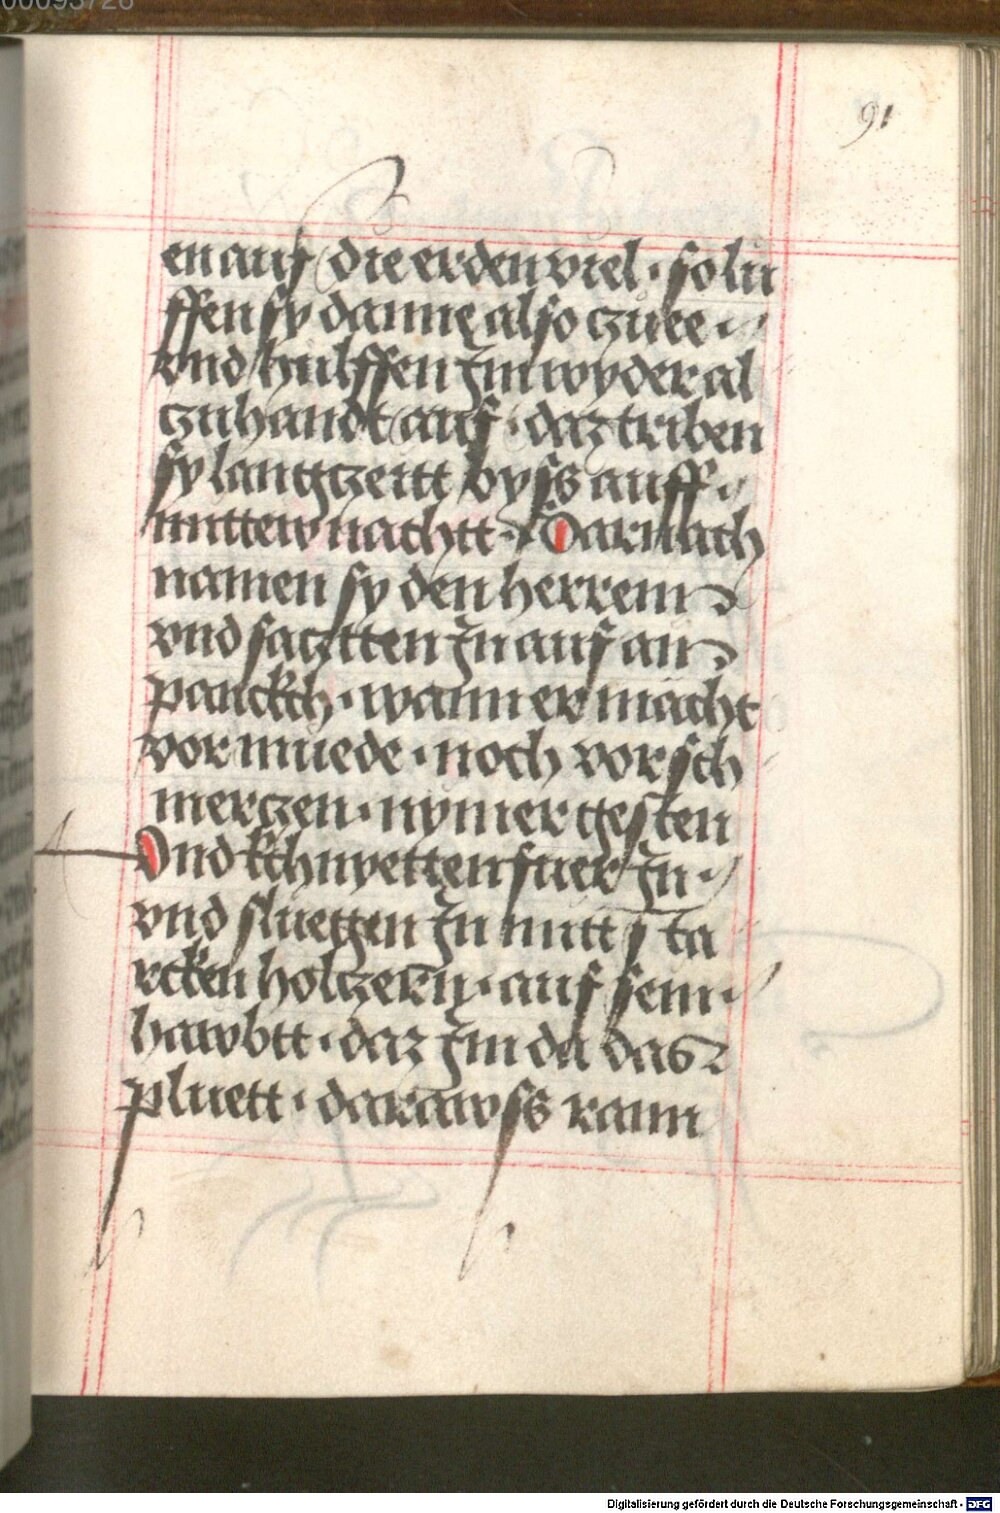 00093726
91
en auf die erden viel · so lu
ffen sy danne also czuee ·
vnd hulffen Im wyder al
czuhandt auf · daz triben
sy langgzeitt byss auff ·
mittew nachtt · Darnach
namen sy den herrenn
vnd saczten In auf ain
panckch · wann er macht
vor muede · noch vor sch
merczen · nymer gesten
Vnd kchnyetten fuer In ·
vnd sluegen In mitt sta
rcken holczern · auf sein ·
hawbtt · daz Im da das
pluett · darawss rann
Digitalisierung gefördert durch die Deutsche Forschungsgemeinschaft - DFG